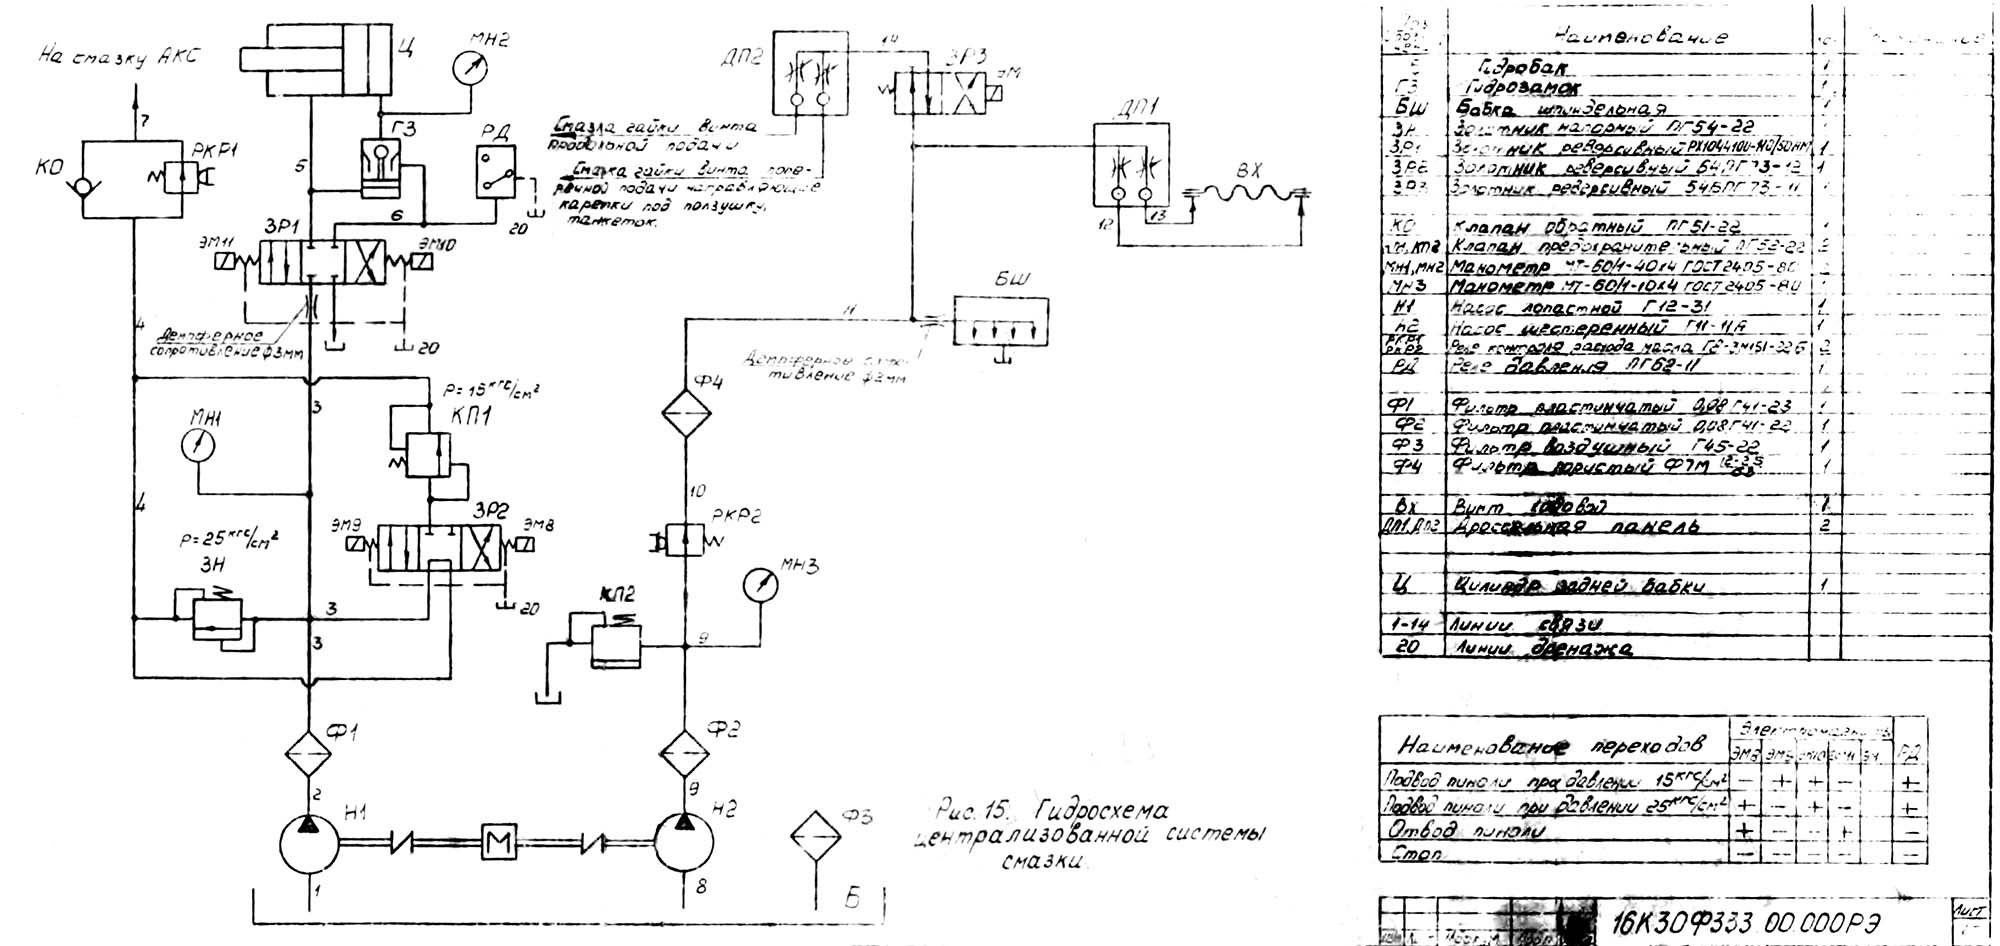 На смазку АКС
7
КО
РКР1
Ц
МН2
ГЗ
РД
5
6
20
ЗР1
ЭМ11
ЭМ10
4
Демпферное
сопротивление ф3мм
20
3
МН1
P=15кгс/см²
КП1
4
ЗР2
ЭМ9
ЭМ8
P=25кгс/см²
ЗН
3
20
3
Ф1
2
Н1
М
1
ДП2
14
ЗР3
ЭМ
Смазка гайки винта
продольной подачи
Смазка гайки винта попе-
речной подачи направляющие
каретки под ползушку,
ДП1
ВХ
12
13
БШ
11
Демпферное сопро-
тивление ф2мм
Ф4
10
РКР2
МН3
КП2
9
Ф2
9
Н2
8
Ф3
Б
Рис. 15. Гидросхема
централизованной системы
смазки.
Наименование
Гидробак 1
ГЗ Гидрозамок 1
БШ Бабка шпиндельная 1
ЗН Золотник напорный ПГ54-22
ЗР1 Золотник реверсивный 1
ЗР2 Золотник реверсивный 54ПГ73-12 1
ЗР3 Золотник реверсивный 54БПГ73-11 1
КО Клапан обратный ПГ51-22 1
КП2 Клапан предохранительный ПГ52-22 2
МН1, МН2 Манометр МТ-60/1-40х4 ГОСТ 2405-80
МН3 Манометр МТ-60/1-10х4 ГОСТ 2405-80
Н1 Насос лопастной Г12-31 1
Н2 Насос шестеренный Г11-11А 1
РКР1 РКР2 Реле контроля расхода масла 2
РД Реле давления ПГ62-11 1
Ф1 Фильтр пластинчатый 0,08Г41-23 1
Ф2 Фильтр пластинчатый 0,08Г41-22 1
Ф3 Фильтр воздушный Г45-22 1
Ф4 Фильтр пористый ФПМ 1
Вх Винт ходовой 1
ДП1, ДП2 Дроссельная панель 2
Ц Цилиндр задней бабки 1
1-14 Линии связи
20 Линии дренажа
Наименование переходов Электромагниты РД
ЭМ8 ЭМ9 ЭМ10 ЭМ11 ЭМ
Подвод пиноли при давлении 15кгс/см² - + + - +
Подвод пиноли при давлении 25кгс/см² + - + - +
Отвод пиноли + - - + -
Стоп - - - - -
16К30Ф333.00.000РЭ
Лист